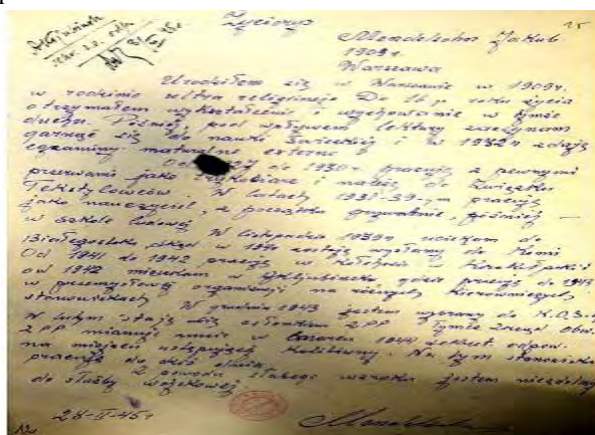 15
Życiorys
Mendelsohn Jakub
1909 r.
Warszawa
Urodziłem się w Warszawie w 1909 r.
w rodzinie ultra religijnej. Do 16 p. roku życia
otrzymałem wykształcenie i wychowanie w tymże
duchu. Później, pod wpływem lektury zaczynam
garnąć się do nauki świeckiej i w 1932 r. zdaję
egzaminy maturalne externo
Od do 1930 r. pracuję z pewnymi
przerwami jako i należę do Związku
W latach 1931-39-ym pracuję
jako nauczyciel, z początku prywatnie, później —
w szkole
W listopadzie 1939 r. uciekam do
Białegostoku, skąd w 1940 zostaję wysłany do Komi
Od 1941 do 1942 pracuję w
od 1942 mieszkam w gdzie pracuję do 1943
w przemysłowej organizacji na różnych kierowniczych
stanowiskach
W grudniu 1943 jestem wybrany do
W lutym staję się członkiem ZPP Zarząd obw.
ZPP mianuje mnie w 1944 sekret. odpow.
na miejsce ustępującej Na tym stanowisku
pracuję do dnia
Z powodu słabego wzroku jestem niezdolny
do służby wojskowej.
28-II-45 r.